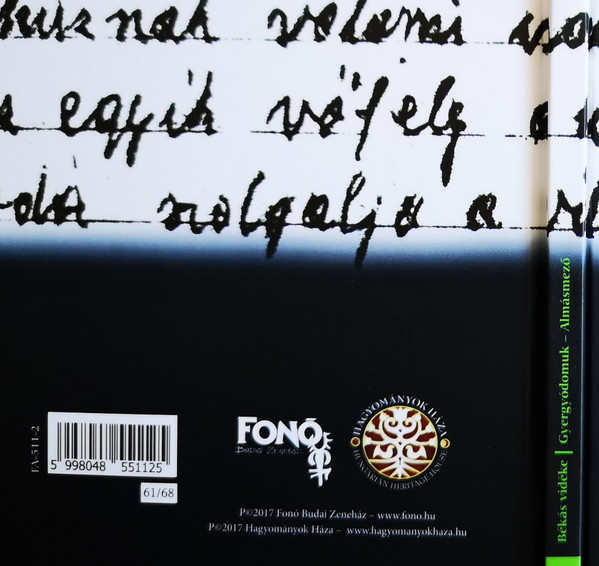 valami
egyik vőfély a
szolgálja a
FA-511-2
5 998048 551125
61/68
FONÓ
Budai Zeneház
HAGYOMÁNYOK HÁZA
HUNGARIAN HERITAGE HOUSE
P©2017 Fonó Budai Zeneház – www.fono.hu
P©2017 Hagyományok Háza – www.hagyomanyokhaza.hu
Békás vidéke | Gyergyódomuk – Almásmező